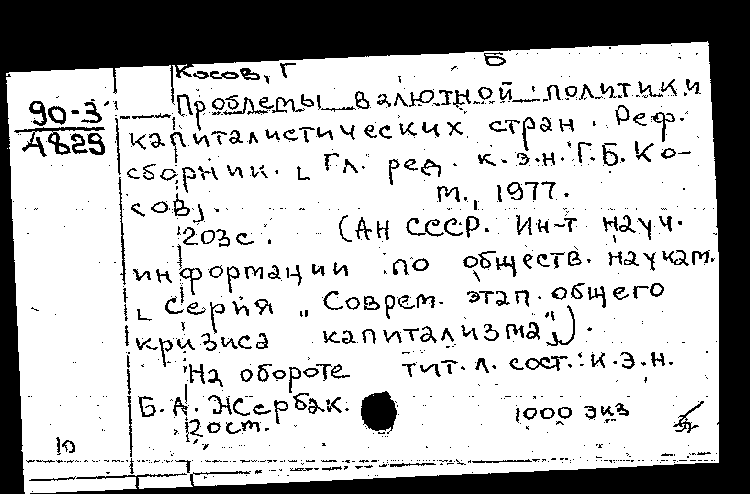 Косов, Г Б
90-3
4829
Проблемы валютной политики
капиталистических стран. Реф.
сборник. [Гл. ред. к.э.н. Г.Б. Ко-
сов].
М., 1977.
203с. (АН СССР. Ин-т науч.
информации по обществ. наукам.
[Серия "Соврем. этап общего
кризиса капитализма"]).
На обороте тит. л. сост.: к.э.н.
Б.А. Жербак.
20ст.
1000 экз
10